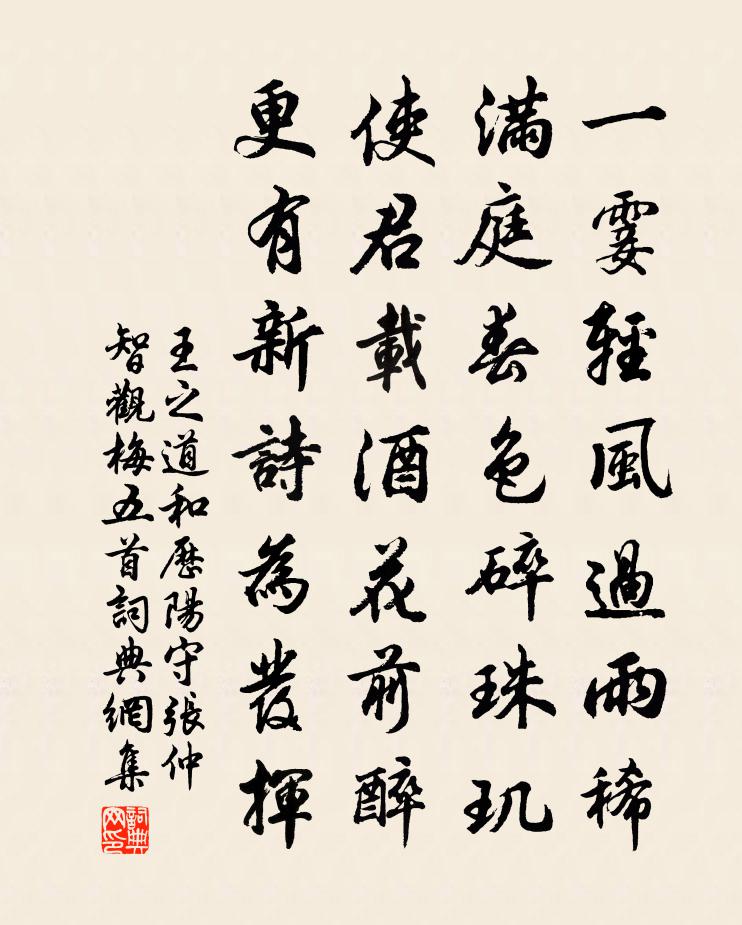 一霎輕風過雨稀
滿庭春色碎珠玑
使君載酒花前醉
更有新詩為發揮
王之道和歷陽守張仲
智觀梅五首詞典網集
詞典網印